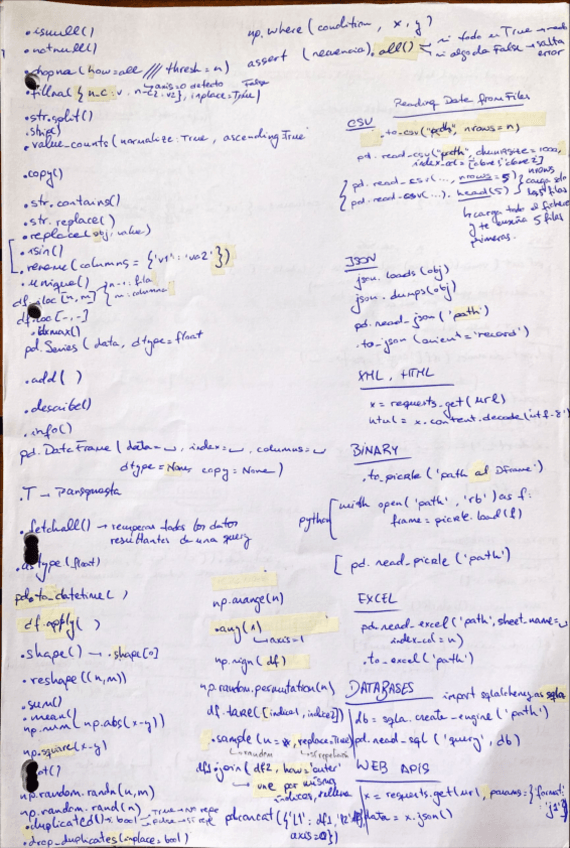 .isnull()
.notnull()
.dropna(how=all /// thresh=n)
↳axis=0 defecto
.fillna({n.c: v, n-c2: v2}, inplace=True)
False
.str.split()
.strip()
.value_counts(normalize:True, ascending True
.copy()
.str.contains()
.str.replace()
.replace(obj, value)
.isin()
.rename(columns = {'v1':'va2'})
.unique()
df.iloc[n,m] n-1: fila
m: columna
df.loc[-,-]
.idxmax()
pd.Series(data, dtype=float
.add( )
.describe()
.info()
pd.DataFrame(data=␣, index=␣, columns=␣
dtype=None, copy=None)
.T → Transpuesta
.fetchall() → recupera todos los datos
resultantes de una query
.astype(float)
pd.to_datetime( )
df.apply( )
.shape() → .shape[0]
.reshape((n,m))
.sum()
.mean()
np.sum(np.abs(x-y))
np.square(x-y)
np.random.randn(n,m)
np.random.rand(n)
.duplicated() → bool
.drop_duplicates(inplace=bool)
np.where(condition, x, y)
assert (secuencia).all()
si todo es True → nada
si algo da False → salta
error
np.arange(n)
.any(1)
↳axis=1
np.sign(df)
np.random.permutation(n)
df.take([indice1, indice2])
.sample(n=*, replace.True)
↳random
df1.join(df2, how='outer'
→ une por mismo
pd.concat({'L1': df1,
axis=0})
Reading Data from Files
CSV
.to_csv("path", nrows=n)
pd.read_csv("path", chunksize=1000,
index_col=['clave1','clave2']
pd.read_csv(..., nrows=5)
pd.read_csv(...).head(5)
nrows
carga solo
las 5 filas
↳ carga todo el fichero
y te enseña 5 filas
primeras.
JSON
json.loads(obj)
json.dumps(obj)
pd.read_json('path')
.to_json(orient='record')
XML, HTML
x = requests.get(url)
html = x.content.decode(utf-8')
BINARY
.to_pickle('path al Dframe')
python
with open('path', 'rb') as f:
frame=pickle.load(f)
pd.read_pickle('path')
EXCEL
pd.read_excel('path', sheet_name=␣
index_col=n)
.to_excel('path')
DATABASES
import sqlalchemy as sqla
db = sqla.create_engine('path')
pd.read_sql('query', db)
WEB APIS
x = requests.get(url, params={'format':
data = x.json()